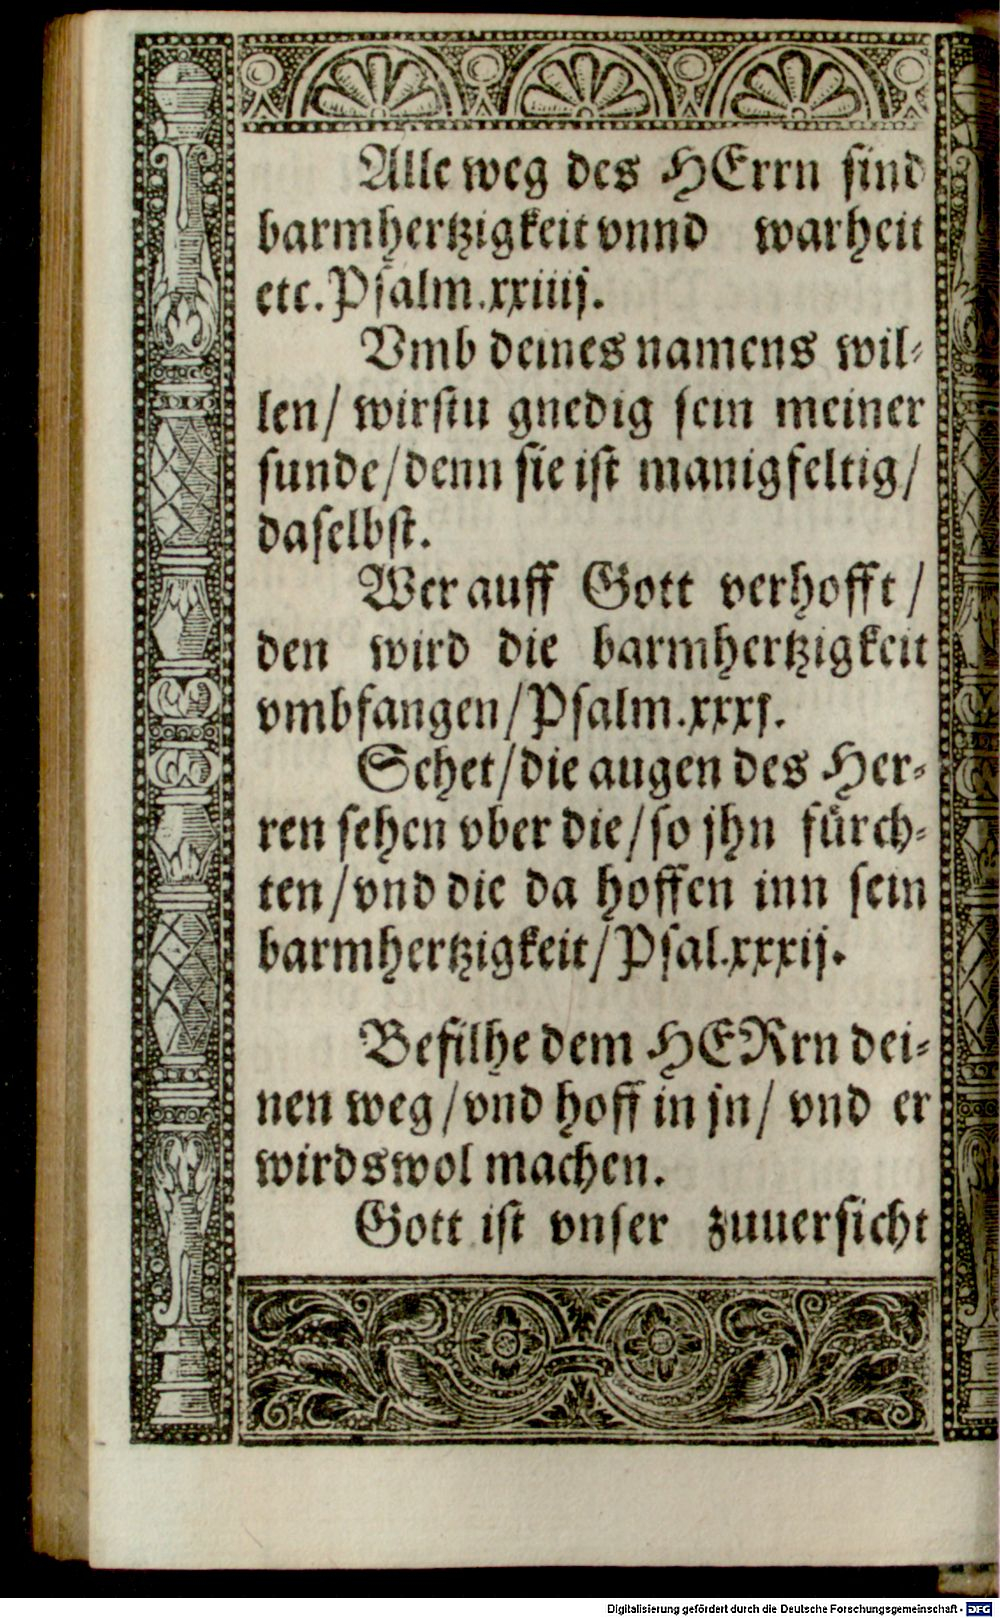 Alle weg des HErrn sind
barmhertzigkeit vnnd warheit
etc. Psalm.xxiiij.
Vmb deines namens wil⸗
len/ wirstu gnedig sein meiner
sunde/ denn sie ist manigfeltig/
daselbst.
Wer auff Gott verhofft/
den wird die barmhertzigkeit
vmbfangen/ Psalm.xxxj.
Sehet/ die augen des Her⸗
ren sehen vber die/ so jhn fürch⸗
ten/ vnd die da hoffen inn sein
barmhertzigkeit/ Psal.xxxij.
Befilhe dem HERrn dei⸗
nen weg/ vnd hoff in jn/ vnd er
wirds wol machen.
Gott ist vnser zuuersicht
Digitalisierung gefördert durch die Deutsche Forschungsgemeinschaft - DFG